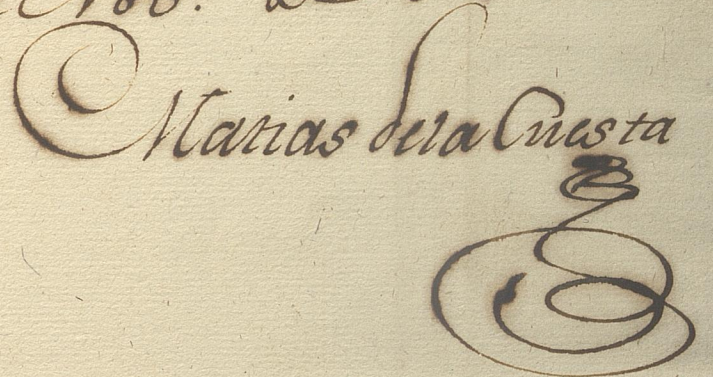 Matias dela Cuesta